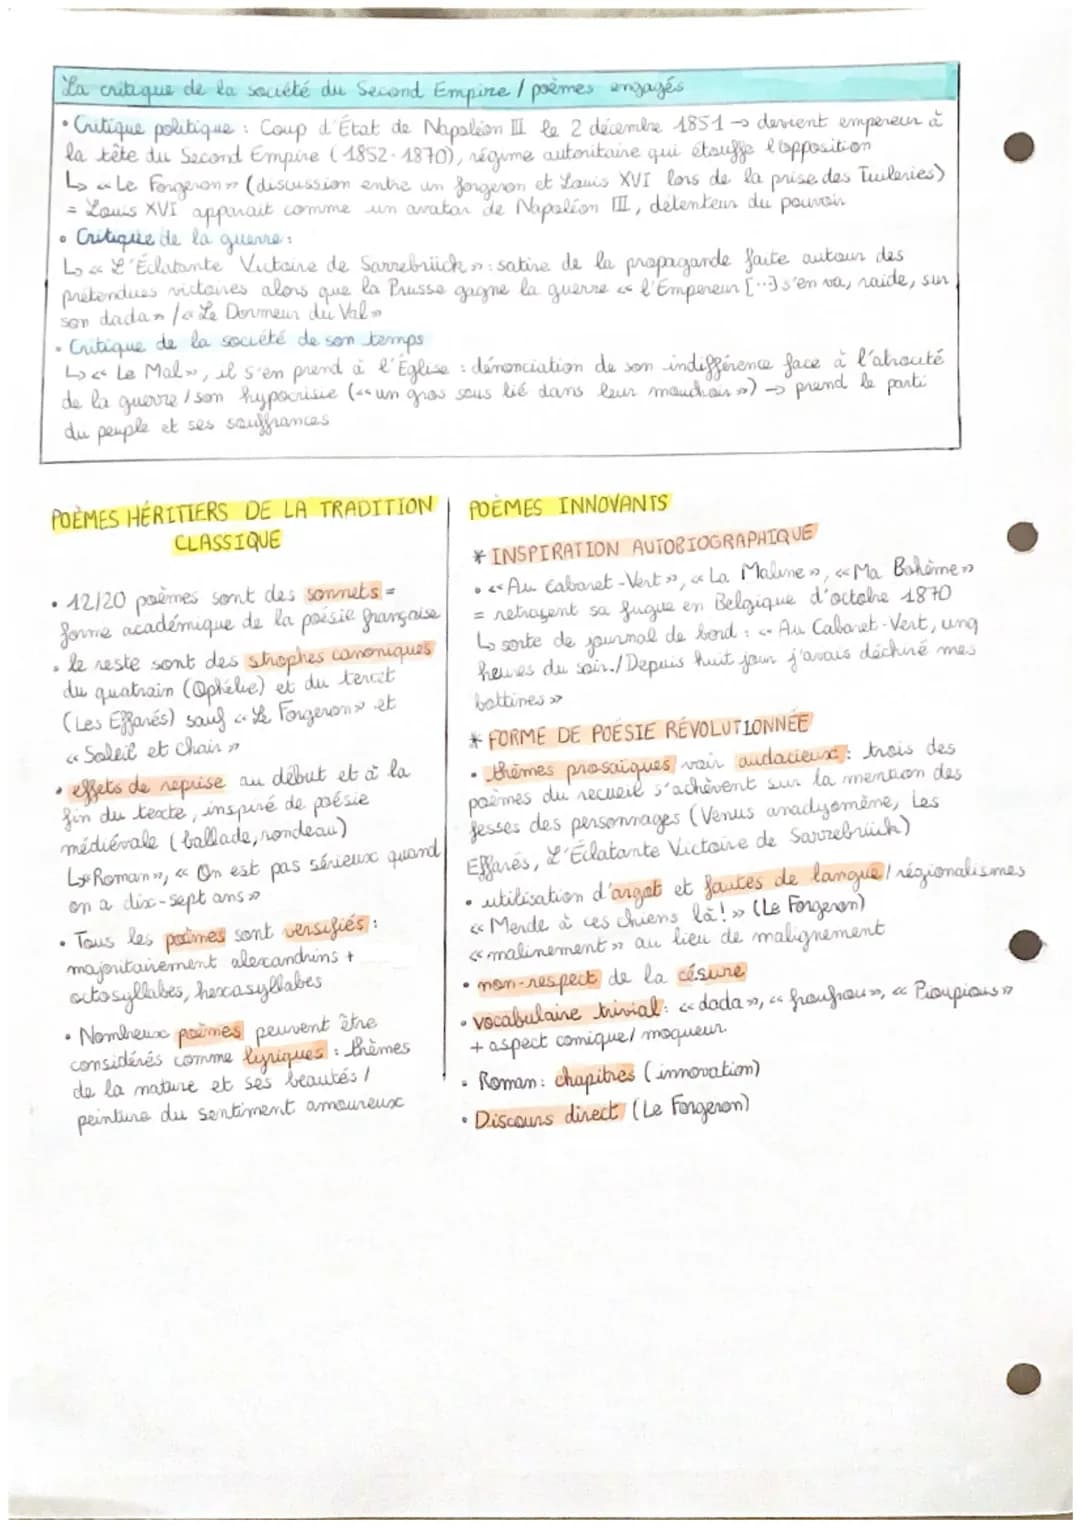 La critique de la société du Second Empire / poèmes engagés
• Critique politique : Coup d'État de Napoléon III le 2 décembre 1851 → devient empereur à
la tête du Second Empire (1852-1870), régime autoritaire qui étouffe l'opposition
↳ « Le Forgeron » (discussion entre un forgeron et Louis XVI lors de la prise des Tuileries)
= Louis XVI apparait comme un avatar de Napoléon III, détenteur du pouvoir
• Critique de la guerre :
↳ « L'Éclatante Victoire de Sarrebrück » : satire de la propagande faite autour des
prétendues victoires alors que la Prusse gagne la guerre « l'Empereur [...] s'en va, raide, sur
son dada » / « Le Dormeur du Val »
• Critique de la société de son temps
↳ « Le Mal », il s'en prend à l'Église : dénonciation de son indifférence face à l'atrocité
de la guerre / son hypocrisie (« un gros sous lié dans leur mouchoir ») → prend le parti
du peuple et ses souffrances
POÈMES HÉRITIERS DE LA TRADITION
CLASSIQUE
• 12/20 poèmes sont des sonnets =
forme académique de la poésie française
• le reste sont des strophes canoniques
du quatrain (Ophélie) et du tercet
(Les Effarés) sauf « Le Forgeron » et
« Soleil et chair »
• effets de reprise au début et à la
fin du texte, inspiré de poésie
médiévale (ballade, rondeau)
↳ « Roman », « On est pas sérieux quand
on a dix-sept ans »
• Tous les poèmes sont versifiés :
majoritairement alexandrins +
octosyllabes, hexasyllabes
• Nombreux poèmes peuvent être
considérés comme lyriques : thèmes
de la nature et ses beautés /
peinture du sentiment amoureux
POÈMES INNOVANTS
* INSPIRATION AUTOBIOGRAPHIQUE
• « Au Cabaret-Vert », « La Maline », « Ma Bohème »
= retraçent sa fugue en Belgique d'octobre 1870
↳ sorte de journal de bord : « Au Cabaret-Vert, cinq
heures du soir. / Depuis huit jour j'avais déchiré mes
bottines »
* FORME DE POÉSIE RÉVOLUTIONNÉE
• thèmes prosaïques voir audacieux : trois des
poèmes du recueil s'achèvent sur la mention des
fesses des personnages (Venus anadyomène, Les
Effarés, L'Éclatante Victoire de Sarrebrück)
• utilisation d'argot et fautes de langue / régionalismes
« Merde à ces chiens là ! » (Le Forgeron)
« malinement » au lieu de malignement
• non-respect de la césure
• vocabulaire trivial : « dada », « froufrou », « Pioupious »
+ aspect comique / moqueur
• Roman : chapitres (innovation)
• Discours direct (Le Forgeron)